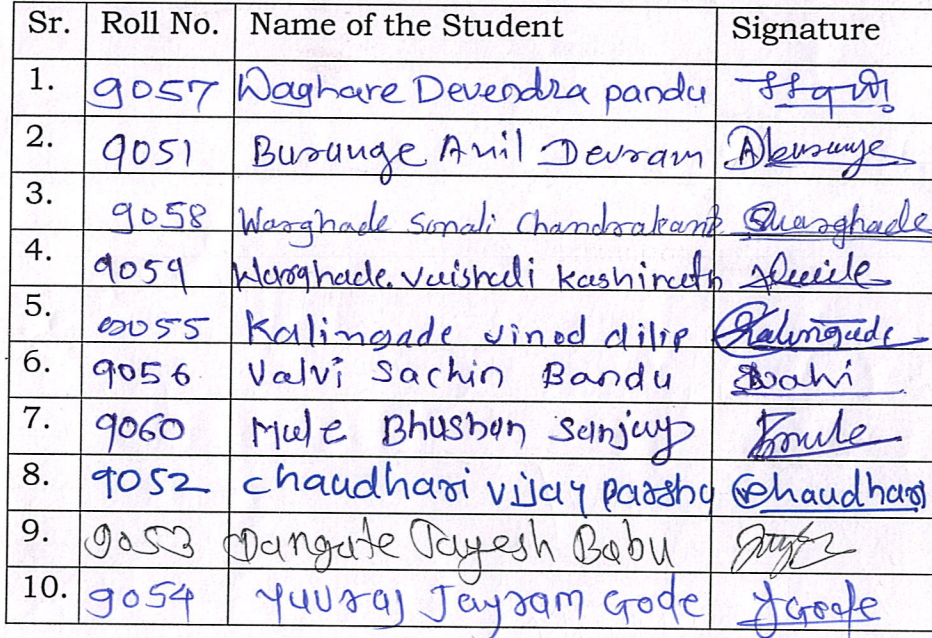 Sr. Roll No. Name of the Student Signature
1. 9057 Waghare Devendra pandu
2. 9051 Burunge Anil Devram Aburunge
3. 9058 Warghade Sonali Chandrakant Swarghade
4. 9059 Warghade Vaishali Kashinath
5. 9055 Kalingade vinod dilip Kalingade
6. 9056 Valvi Sachin Bandu
7. 9060 Mule Bhushan Sanjay Bmule
8. 9052 chaudhari vijay parshu chaudhari
9. 9053 Dangate Jayesh Babu
10. 9054 Yuvraj Jayram Gode YGode